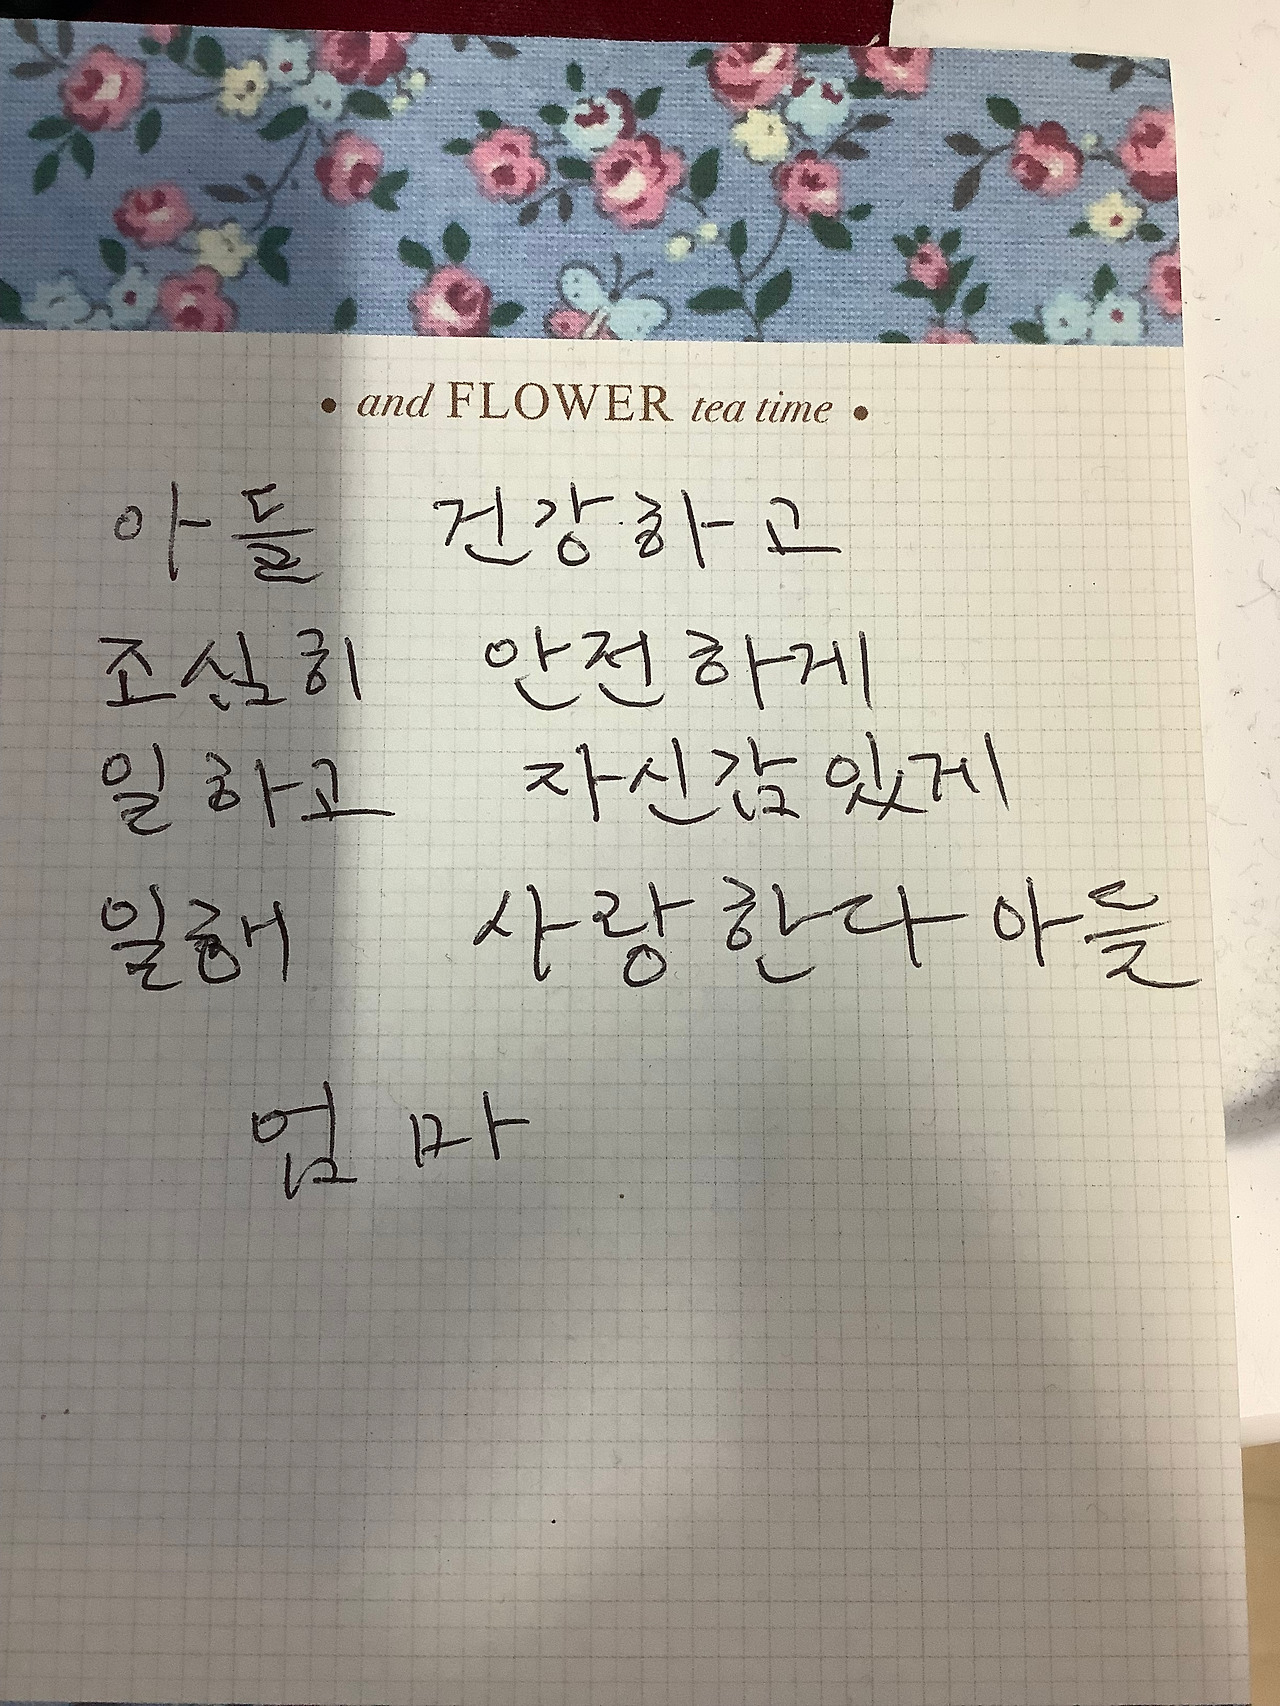 • and FLOWER tea time •
아들 건강하고
조심히 안전하게
일하고 자신감있게
일해 사랑한다 아들
엄마